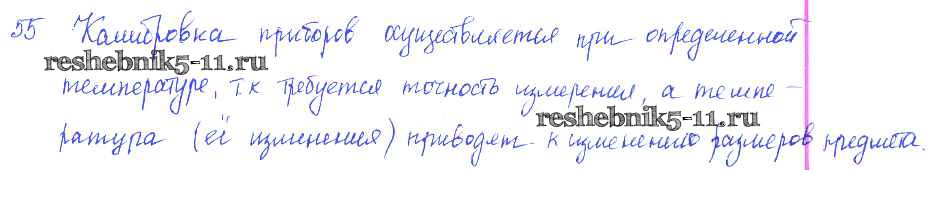 55 Калибровка приборов осуществляется при определенной
reshebnik5-11.ru
температуре, т.к требуется точность измерения, а темпе-
reshebnik5-11.ru
ратура (её изменения) приводят к изменению размеров предмета.